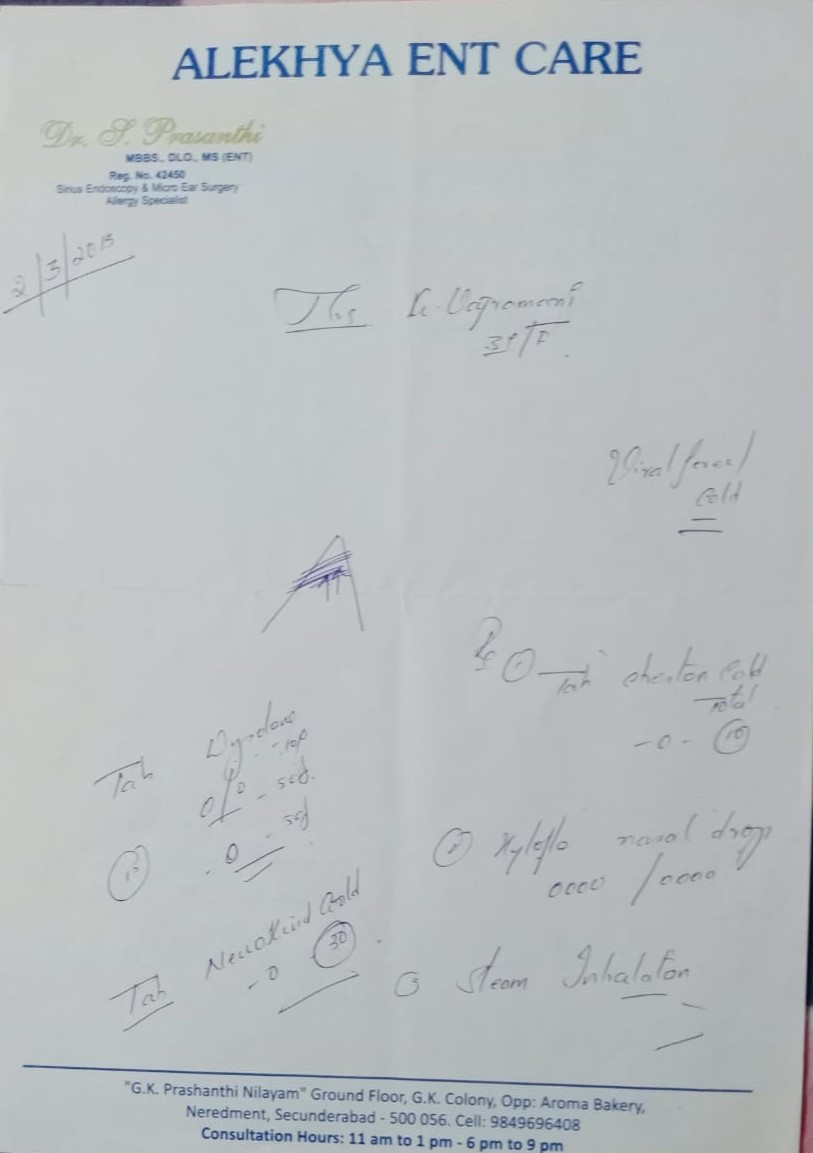 ALEKHYA ENT CARE
Dr. S. Prasanthi
MBBS., DLO., MS (ENT)
Reg. No. 42450
Sinus Endoscopy & Micro Ear Surgery
Allergy Specialist
2/3/2015
K. Vagramani
Viral fever/
Cold
Rx ① Tab cheston Cold
Total
-0- ⑩
② Xyloflo nasal drops
0000 /0000
③ Steam Inhalaton
Tab
- 5d.
0 - 5d
Tab Neurokind Gold
-0 ㉚
"G.K. Prashanthi Nilayam" Ground Floor, G.K. Colony, Opp: Aroma Bakery,
Neredment, Secunderabad - 500 056. Cell: 9849696408
Consultation Hours: 11 am to 1 pm - 6 pm to 9 pm